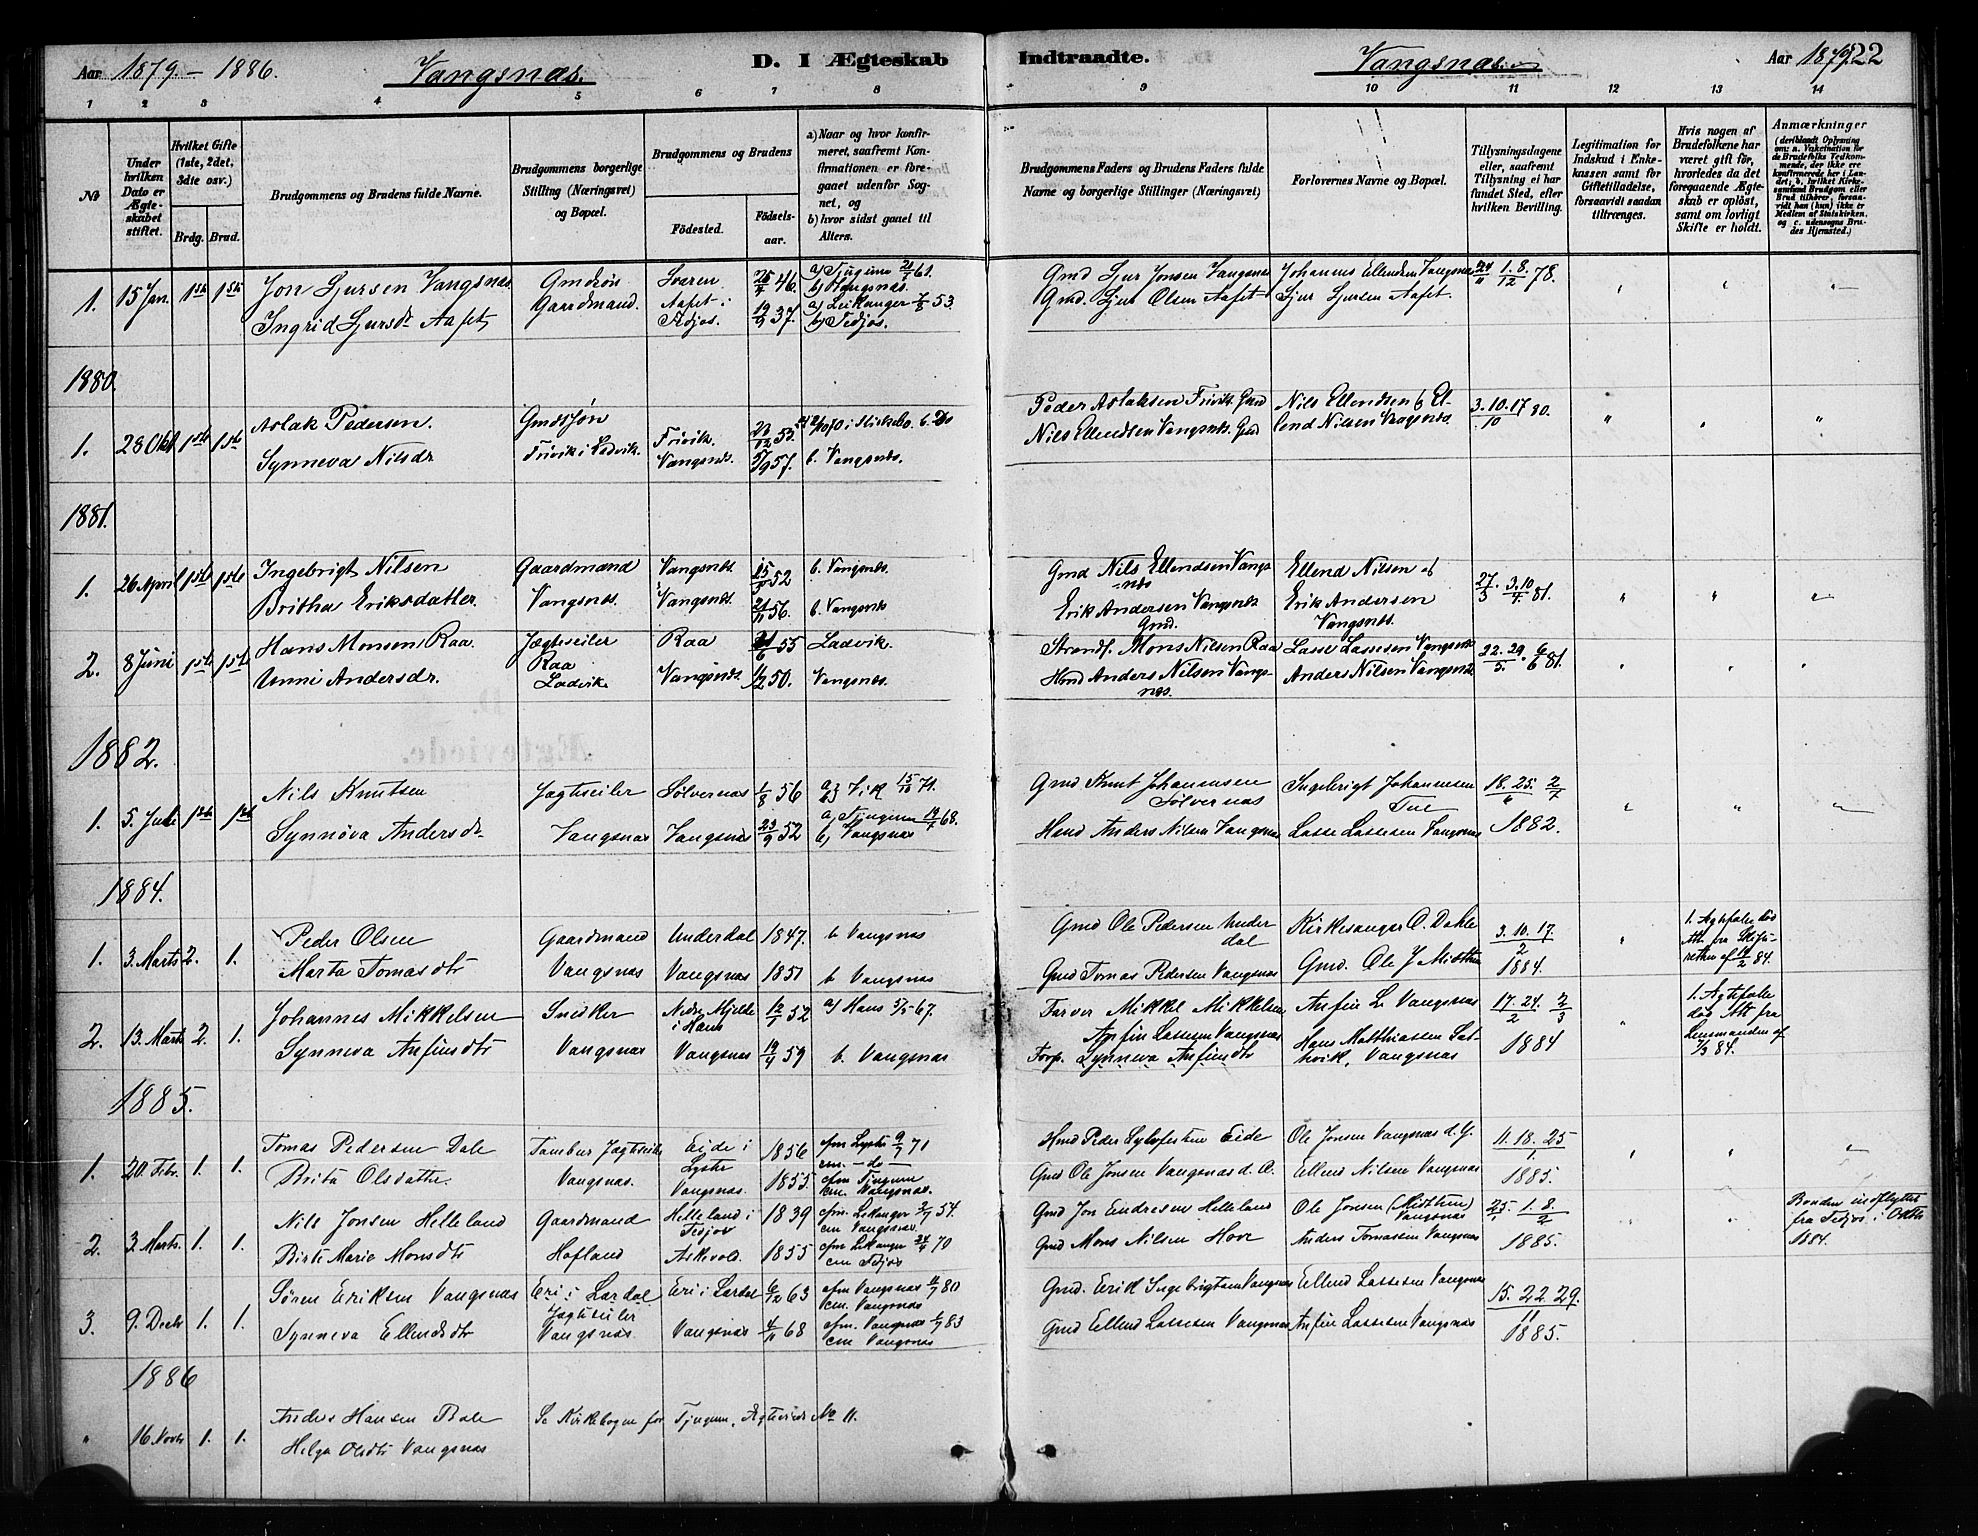 Aar 1879. – 1886. Vangsnæs. D. I Ægteskab Indtraadte. Vangsnæs. Aar 1879. 22
1 2 3 4 5 6 7 8 9 10 11 12 13 14
№
Under hvilken Dato er Ægteskabet stiftet.
Hvilket Gifte (1ste, 2det, 3die osv.)
Brdg. Brud.
Brudgommens og Brudens fulde Navne.
Brudgommens borgerlige Stilling (Næringsvei) og Bopæl.
Brudgommens og Brudens
Fødested.
Fødselsaar.
a) Naar og hvor konfirmeret, saafremt Konfirmationen er foregaaet udenfor Sognet, og
b) hvor sidst gaaet til Alters.
Brudgommens Faders og Brudens Faders fulde Navne og borgerlige Stillinger (Næringsvei)
Forlovernes Navne og Bopæl.
Tillysningsdagene eller, saafremt Tillysning ei har fundet Sted, efter hvilken Bevilling.
Legitimation for Indskud i Enkekassen samt for Giftetilladelse, forsaavidt saadan tiltrænges.
Hvis nogen af Brudefolkene har været gift før, hvorledes da det foregaaende Ægteskab er opløst, samt om lovligt Skifte er holdt.
Anmærkninger
1. 15 Jan. 1ste 1ste Jon Sjursen Vangsnæs Gmdsøn 46. a) Tjugum 61. Gmd Sjur Jonsen Vangsnæs Johannes Ellendsen Vangsnæs 1. 8. 78.
Ingrid Sjursdr Aafet Gaardmand. Aafet i Fedjos. 37. b) Vangsnæs. a) Leikanger 53. b) Fedjos. Gmd. Sjur Olsen Aafet Sjur Sjursen Aafet.
1880.
1. 28 Okt 1ste 1ste Aslak Pedersen. Gmdssøn Frivik. 53. Peder Aslaksen Frivik Gmd Nils Ellendsen & El- 3.10.17 80.
Synneva Nilsdr Frivik i Ladvik. Vangsnæs. 57. b. Vangsnæs. Nils Ellendsen Vangsnæs. Gmd lend Nilsen Vangsnæs. 10
1881.
1. 26 April 1ste 1ste Ingebrigt Nilsen Gaardmand Vangsnæs. 52 b. Vangsnæs. Gmd Nils Ellendsen Vangsnæs Ellend Nilsen og 27/3. 3.10/4. 81.
Britha Eriksdatter. Vangsnæs. Vangsnæs. 56. b. Vangsnæs Erik Andersen Vangsnæs Gmd. Erik Andersen Vangsnæs.
2. 8 Juni 1ste 1ste Hans Monsen Raa. Jægtseiler Raa 55 Ladvik. Strands. Mons Nilsen Raa Lasse Lassesen Vangsnæs 22. 29/5. 6/6 81.
Unni Andersdr. Raa Ladvik. Vangsnæs. 1/2 50. Vangsnæs. Hmd Anders Nilsen Vangsnæs. Anders Nilsen Vangsnæs
1882.
1. 5. Juli 1ste 1ste Nils Knutsen Jagtseiler Sølvernæs 1/8 56 Vik 71. Gmd Knut Johannesen Sølvernæs Ingebrigt Johannesen Tue 18. 25. 2/7
Synnöva Andersdr Vangsnæs Vangsnæs 23/9 52 a) Tjugum 68. b) Vangsnæs Hmd Anders Nilsen Vangsnæs Lasse Lassesen Vangsnæs 1882.
1884.
1. 3. Marts 2. 1. Peder Olsen Gaardmand Underdal 1847. b Vangsnæs Gmd Ole Pedersen Underdal Kirkesanger O. Dahle 3. 10. 17./2 1. Ægtefælle død
Marta Tomasdtr Vangsnæs Vangsnæs 1851 b Vangsnæs Gmd Tomas Pedersen Vangsnæs Gmd. Ole J Midttun 1884. Att. fra Skifteretten af 84.
2. 13. Marts 2. 1. Johannes Mikkelsen Snedker Nedre Mjelde i Haus 52 a) Haus 67. Farver Mikkel Mikkelsen Anfin L. Vangsnæs 17. 24./2 2/3 1. Ægtefælle død Att fra
Synneva Anfindtr Vangsnæs Vangsnæs 59 b. Vangsnæs Anfin Lassesen Vangsnæs Hans Matthiassen 1884 Lensmanden af 84.
Synneva Anfindtr Vangsnæs
1885.
1. 20. Febr. 1. 1. Tomas Pedersen Dale Tambur Jagtseiler Eide i Lyster 1856 cfm Lyster 71 Hmd Peder Sylfestsen Eide Ole Jonsen Vangsnæs d.Y. 11. 18. 25/1.
Brita Olsdatter Vangsnæs. Vangsnæs. 1855. cfm Tjugum cm Vangsnæs. Gmd Ole Jonsen Vangsnæs d. Æ. Ellend Nilsen Vangsnæs 1885.
2. 3. Marts. 1. 1. Nils Jonsen Helleland Gaardmand Helleland i Fedjos 1839 cfm. Leikanger 54. cm Vangsnæs. Gmd Jon Endresen Helleland Ole Jonsen (Midttun) Vangsnæs 25/1. 1. 8./2 Bruden indflyttet fra Fedjos i Oktbr 1884.
Birte Marie Monsdtr Hofland Askevold. 1855 cfm Leikanger 70 cm Fedjos Gmd Mons Nilsen Hove Anders Tomassen Vangsnæs 1885.
3. 9. Decbr 1. 1. Sören Eriksen Vangsnæs Eri i Lærdal Eri i Lærdal 6/12 63 cfm Vangsnæs 80 cm. Vangsnæs Gmd. Erik Ingebrigtsen Vangsnæs Ellend Lassesen Vangsnæs 15. 22. 29./11
Synneva Ellendsdtr Jagtseiler Vangsnæs Vangsnæs 4/11 68 cfm. Vangsnæs 83 cm Vangsnæs Gmd Ellend Lassesen Vangsnæs Anfin Lassesen Vangsnæs 1885.
1886
" 16 Novbr 1. 1. Anders Hansen Bale Se Kirkebogen for Tjugum, Ægteviede No 11.
Helga Olsdtr Vangsnæs